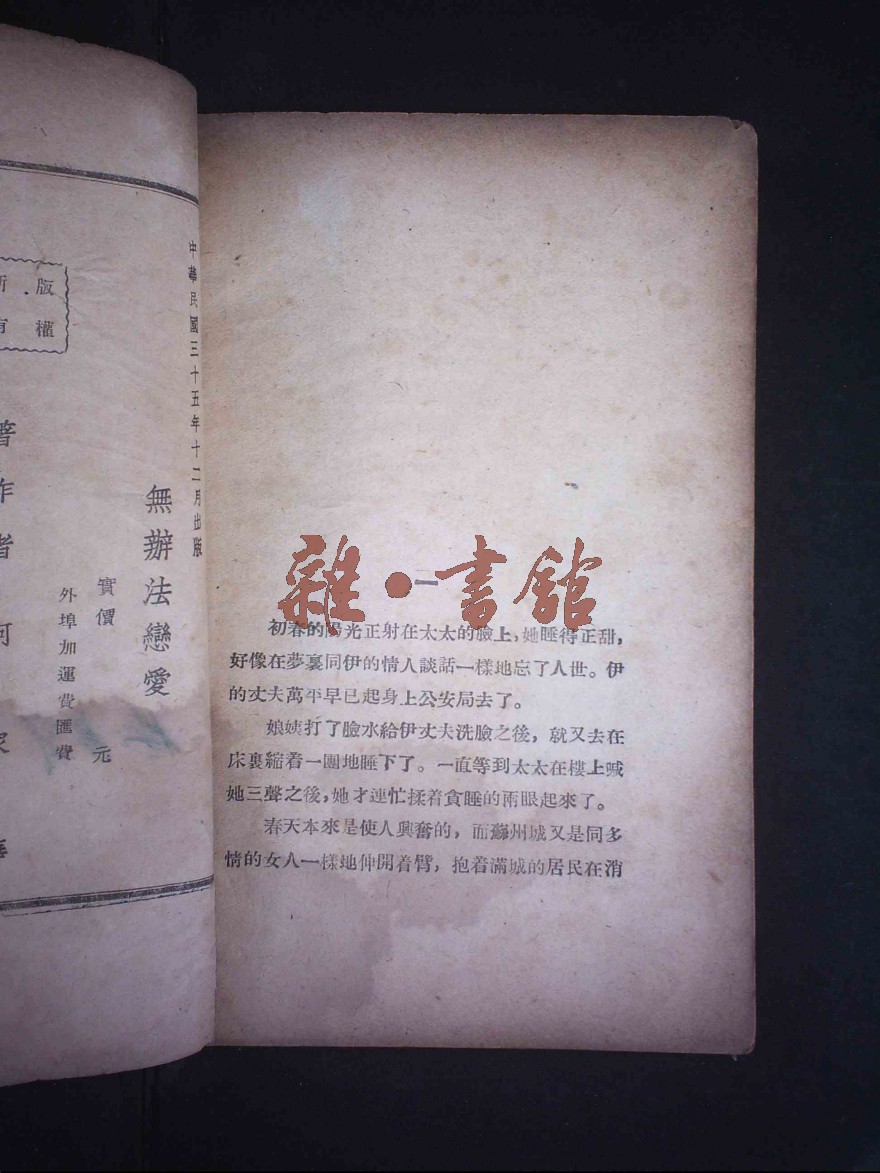 中華民國三十五年十二月出版
無辦法戀愛
實價 元
外埠加運費匯費
版權
有
著作者
雜·書館
一
初春的陽光正射在太太的臉上，她睡得正甜，
好像在夢裏同伊的情人談話一樣地忘了人世。伊
的丈夫萬平早已起身上公安局去了。
娘姨打了臉水給伊丈夫洗臉之後，就又去在
床裏縮着一團地睡下了。一直等到太太在樓上喊
她三聲之後，她才連忙揉着貪睡的兩眼起來了。
春天本來是使人興奮的，而蘇州城又是同多
情的女人一樣地伸開着臂，抱着滿城的居民在消